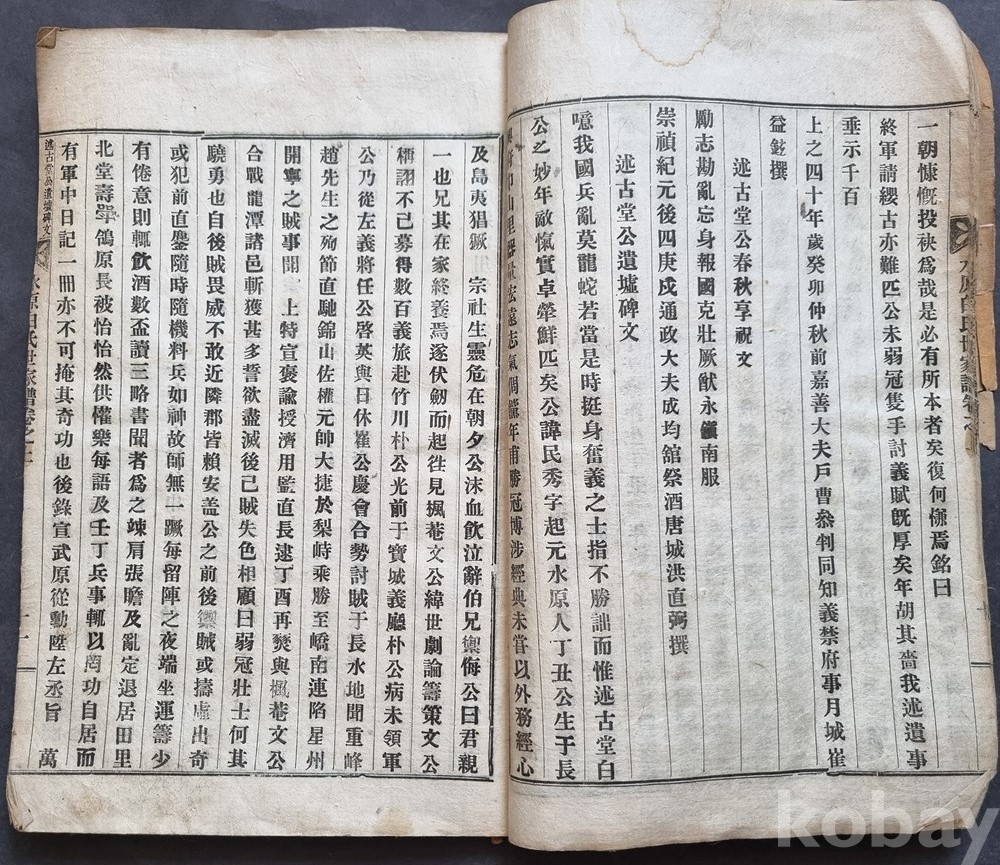 水原白氏世家譜卷之
一朝慷慨投袂爲哉是必有所本者矣復何憾焉銘曰
終軍請纓古亦難匹公未弱冠隻手討義賦旣厚矣年胡其嗇我述遺事
垂示千百
上之四十年歲癸卯仲秋前嘉善大夫戶曹叅判同知義禁府事月城崔
益鉉撰
述古堂公春秋享祝文
勵志勘亂忘身報國克壯厥猷永鎭南服
崇禎紀元後四庚戍通政大夫成均舘祭酒唐城洪直弼撰
述古堂公遺墟碑文
噫我國兵亂莫龍蛇若當是時挺身奮義之士指不勝詘而惟述古堂白
公之妙年敵愾實卓犖鮮匹矣公諱民秀字起元水原人丁丑公生于長
山里器宏遠志氣倜儻年甫勝冠博涉經典未嘗以外務經心
及島夷猖獗宗社生靈危在朝夕公沫血飮泣辭伯兄禦侮公曰君親
一也兄其在家終養焉遂伏劒而起徃見楓菴文公緯世劇論籌策文公
稱詡不已募得數百義旅赴竹川朴公光前于寶城義廳朴公病未領軍
公乃從左義將任公啓英與日休崔公慶會合勢討賊于長水地聞重峰
趙先生之殉節直馳錦山佐權元帥大捷於梨峙乘勝至嶠南連陷星州
開寧之賊事聞 上特宣褒諭授濟用監直長逮丁酉再爕與楓菴文公
合戰龍潭諸邑斬獲甚多誓欲盡滅後已賊失色相顧曰弱冠壯士何其
驍勇也自後賊畏威不敢近隣郡皆賴安盖公之前後禦賊或擣虛出奇
或犯前直鏖隨時隨機料兵如神故師無一蹶每留陣之夜端坐運籌少
有倦意則輒飮酒數盃讀三略書聞者爲之竦肩張膽及亂定退居田里
北堂壽擧鴒原長被怡怡然供懽樂每語及壬丁兵事輒以功自居而
有軍中日記一冊亦不可掩其奇功也後錄宣武原從勳陞左丞旨 萬
述古堂公遺墟碑文
水原白氏世家譜卷之二